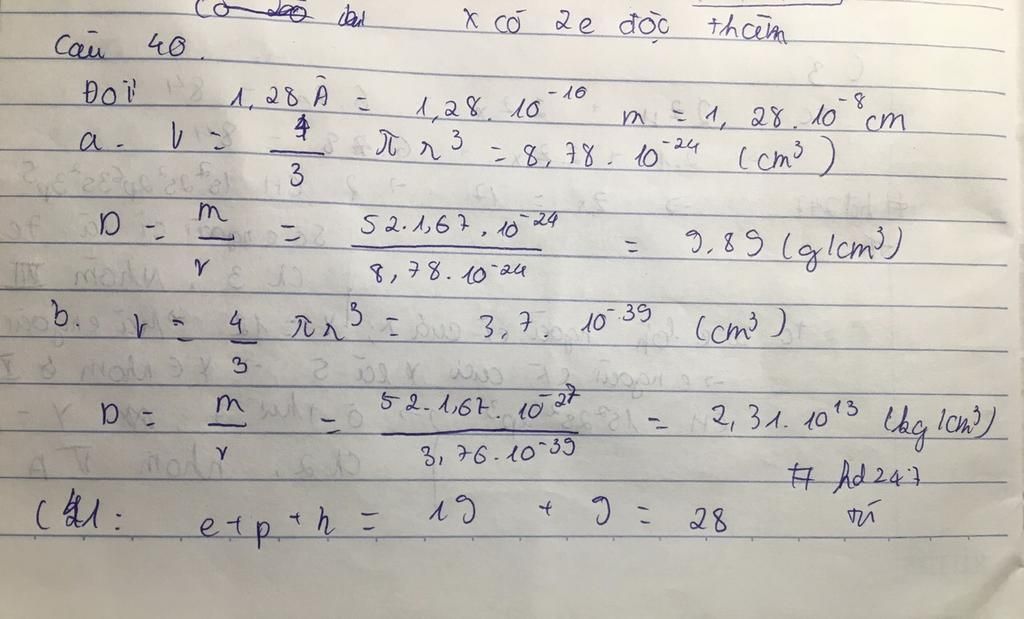 x có 2e độc thân
Câu 40.
Đổi 1,28Å = 1,28.10^-10 m = 1,28.10^-8 cm
a. V = 4/3 πr^3 = 8,78.10^-24 (cm^3)
D = m/v = 52.1,67.10^-24 / 8,78.10^-24 = 9,89 (g/cm^3)
b. v = 4/3 πr^3 = 3,7.10^-39 (cm^3)
D = m/v = 52.1,67.10^-27 / 3,76.10^-39 = 2,31.10^13 (kg/cm^3)
# hd247
C41: e+p+n = 19 + 9 = 28